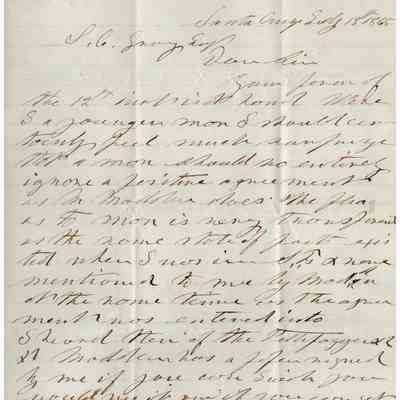 Santa Cruz July 18th 1865
S. C. Gray Esq
Dear Sir
Your favor of
the 12th inst is at hand Were
I a younger man I should cer
tainly feel much surprize
that a man should so entirely
ignore a positive agreement
as Mr Madden does The plea
as to man is very transparent
as the same state of facts exis
ted when I was in S.F. & none
mentioned to me by Madden
at the same time as the agree
ment was entered into
I heard then of the
Madden has a paper signed
by me if you can such you
would